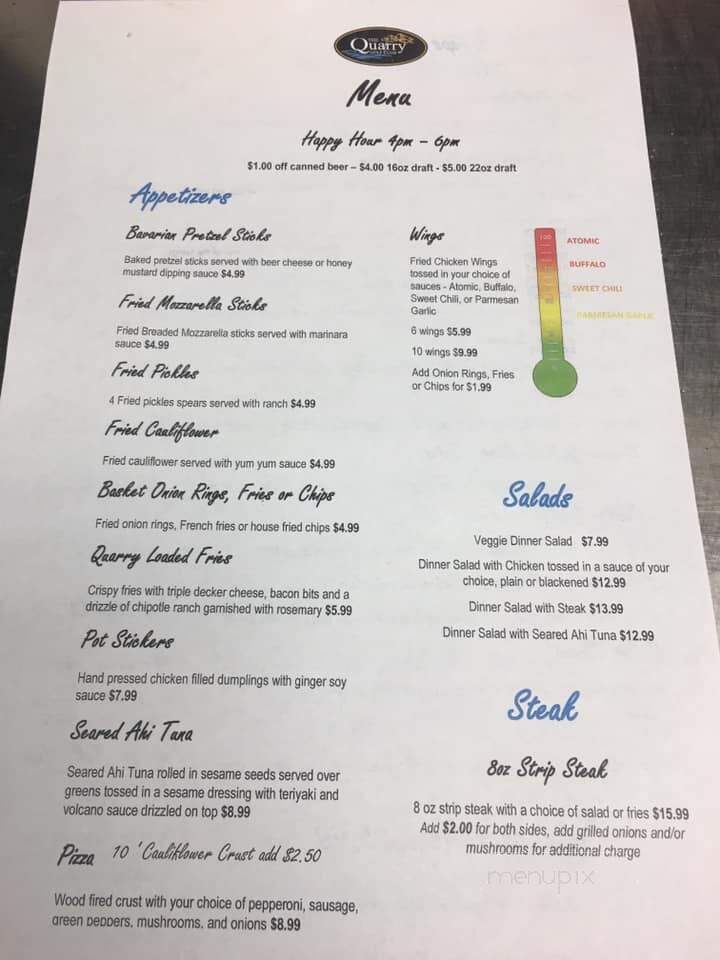 THE
Quarry
Menu
Happy Hour 4pm – 6pm
$1.00 off canned beer – $4.00 16oz draft - $5.00 22oz draft
Appetizers
Bavarian Pretzel Sticks
Baked pretzel sticks served with beer cheese or honey
mustard dipping sauce $4.99
Fried Mozzarella Sticks
Fried Breaded Mozzarella sticks served with marinara
sauce $4.99
Fried Pickles
4 Fried pickles spears served with ranch $4.99
Fried Cauliflower
Fried cauliflower served with yum yum sauce $4.99
Basket Onion Rings, Fries or Chips
Fried onion rings, French fries or house fried chips $4.99
Quarry Loaded Fries
Crispy fries with triple decker cheese, bacon bits and a
drizzle of chipotle ranch garnished with rosemary $5.99
Pot Stickers
Hand pressed chicken filled dumplings with ginger soy
sauce $7.99
Seared Ahi Tuna
Seared Ahi Tuna rolled in sesame seeds served over
greens tossed in a sesame dressing with teriyaki and
volcano sauce drizzled on top $8.99
Pizza 10 'Cauliklower Crust add $2.50
Wood fired crust with your choice of pepperoni, sausage,
green peppers, mushrooms, and onions $8.99
Wings
Fried Chicken Wings
tossed in your choice of
sauces - Atomic, Buffalo,
Sweet Chili, or Parmesan
Garlic
6 wings $5.99
10 wings $9.99
Add Onion Rings, Fries
or Chips for $1.99
100
ATOMIC
BUFFALO
SWEET CHILI
PARMESAN GARLIC
Salads
Veggie Dinner Salad $7.99
Dinner Salad with Chicken tossed in a sauce of your
choice, plain or blackened $12.99
Dinner Salad with Steak $13.99
Dinner Salad with Seared Ahi Tuna $12.99
Steak
8oz Strip Steak
8 oz strip steak with a choice of salad or fries $15.99
Add $2.00 for both sides, add grilled onions and/or
mushrooms for additional charge
menupix